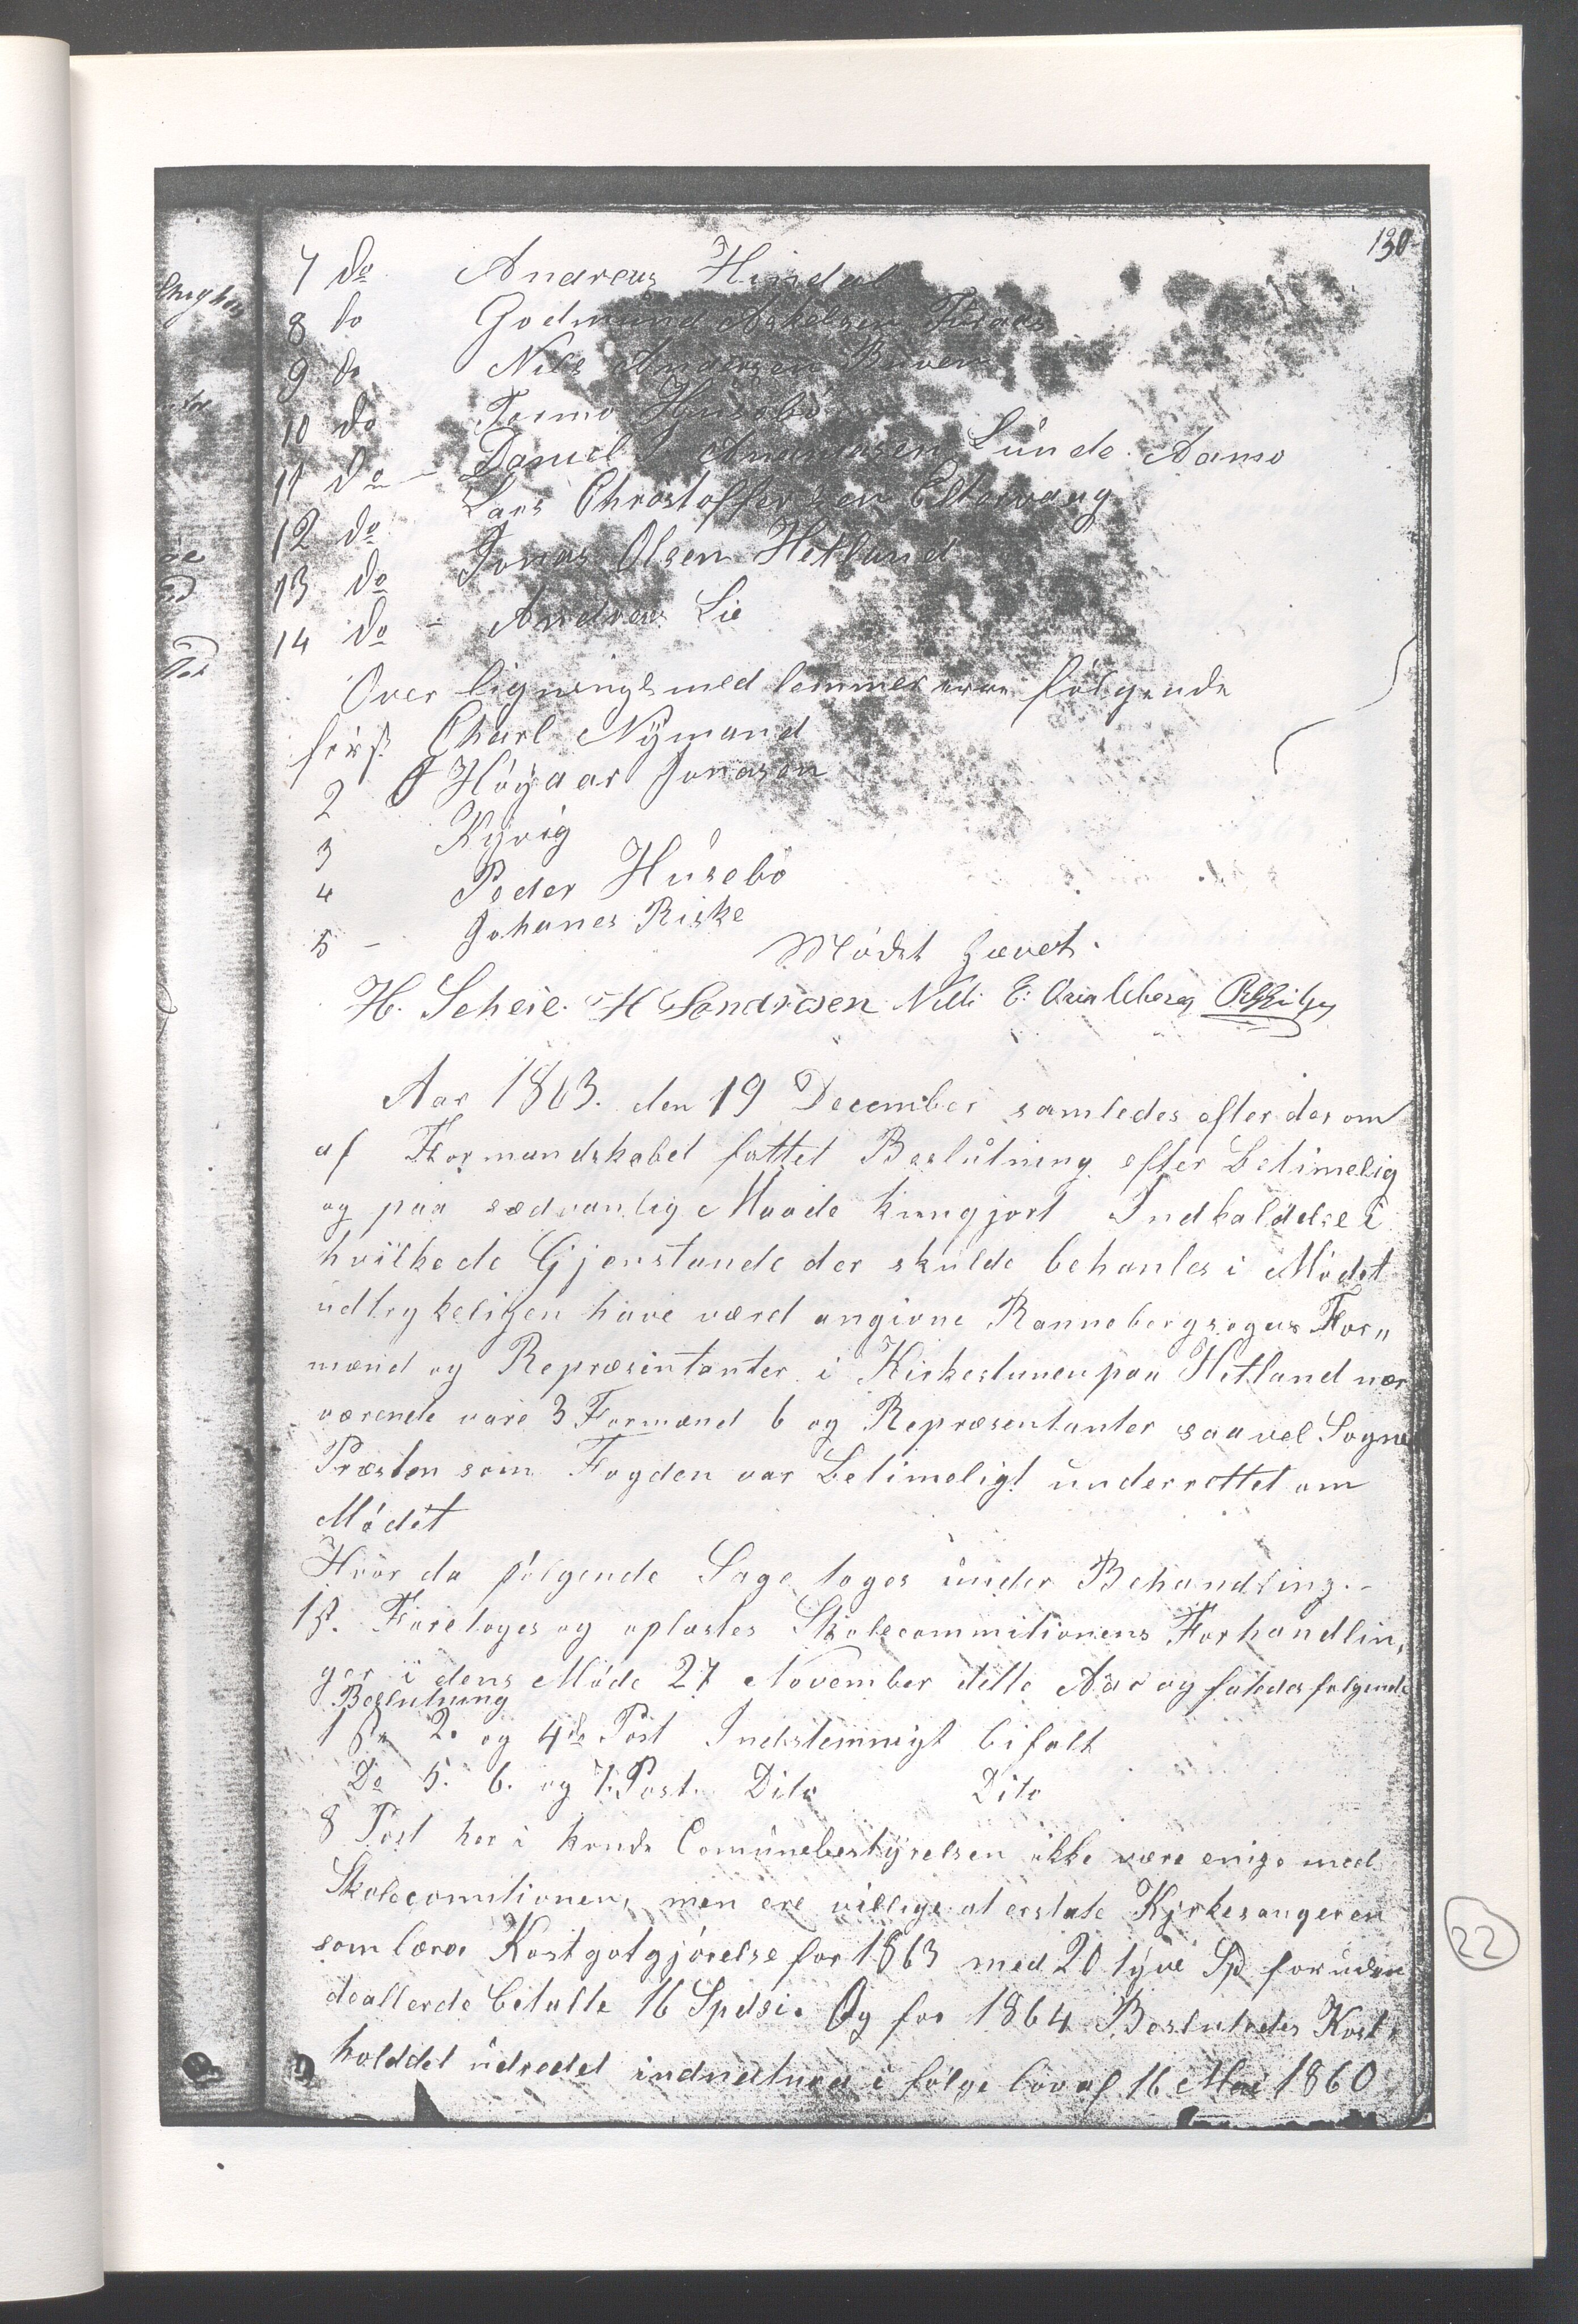 130
7 do Andreas Hindal
8 do Godmund Askelsen
9 do Nils Andersen
10 do Tormo Husebö
11 do - Daniel Lunde. Aamo
12 do Lars Christoffersen Eltervaag
13 do Jonas Olsen Hetland
14 do - Andreas Lie
Over ligningsmed lemmer ere følgende
först Charl Nÿmand
2 Höyaar Jonasen
3 Kyvig
4 Peder Husebö
5 - Johanes Riske
Mødet hævet.
H. Scheie. H Sandresen Nills E.
Aar 1863. den 19 December samledes efter der om
af Formandskabet fattet Beslutning efter betimelig
og paa sædvanlig Maade kungjort Indkaldelse i
hvilke de Gjenstande der skulde behanles i Mødet
udtrykeligen have værd angivne Rannebergsogns For„
mænd og Repræsintanter i Kirkestuen paa Hetland nær
værende vare 3 Formænd 6 og Repræsentanter saavel Sogne
Præsten som Fogden var betimeligt underrettet om
Mødet
Hvor da følgende Sage toges under Behandling.-
1st. Foretoges og oplæstes Skolecommitionens Forhandlin,
ger i dens Møde 27 November dette Aar og fatedes følgende
Beslutning
1ste 2. og 4de Post Indstemmigt bifalt
Do 5. 6. og 7. Post. Dito Dito
8 Post her i kunde Comunebestÿrelsen ikke være enige med
Skolecomitionen, men ere villige at erstate Kjrkesangeren
som lærer Kostgotgjörelse for 1863 med 20 tÿve Sp foruden
deallerde betalte 16 Spdsi. Og for 1864 Besluttedes Kost,
holddet udredet indnatura i følge lov af 16 Mai 1860
22